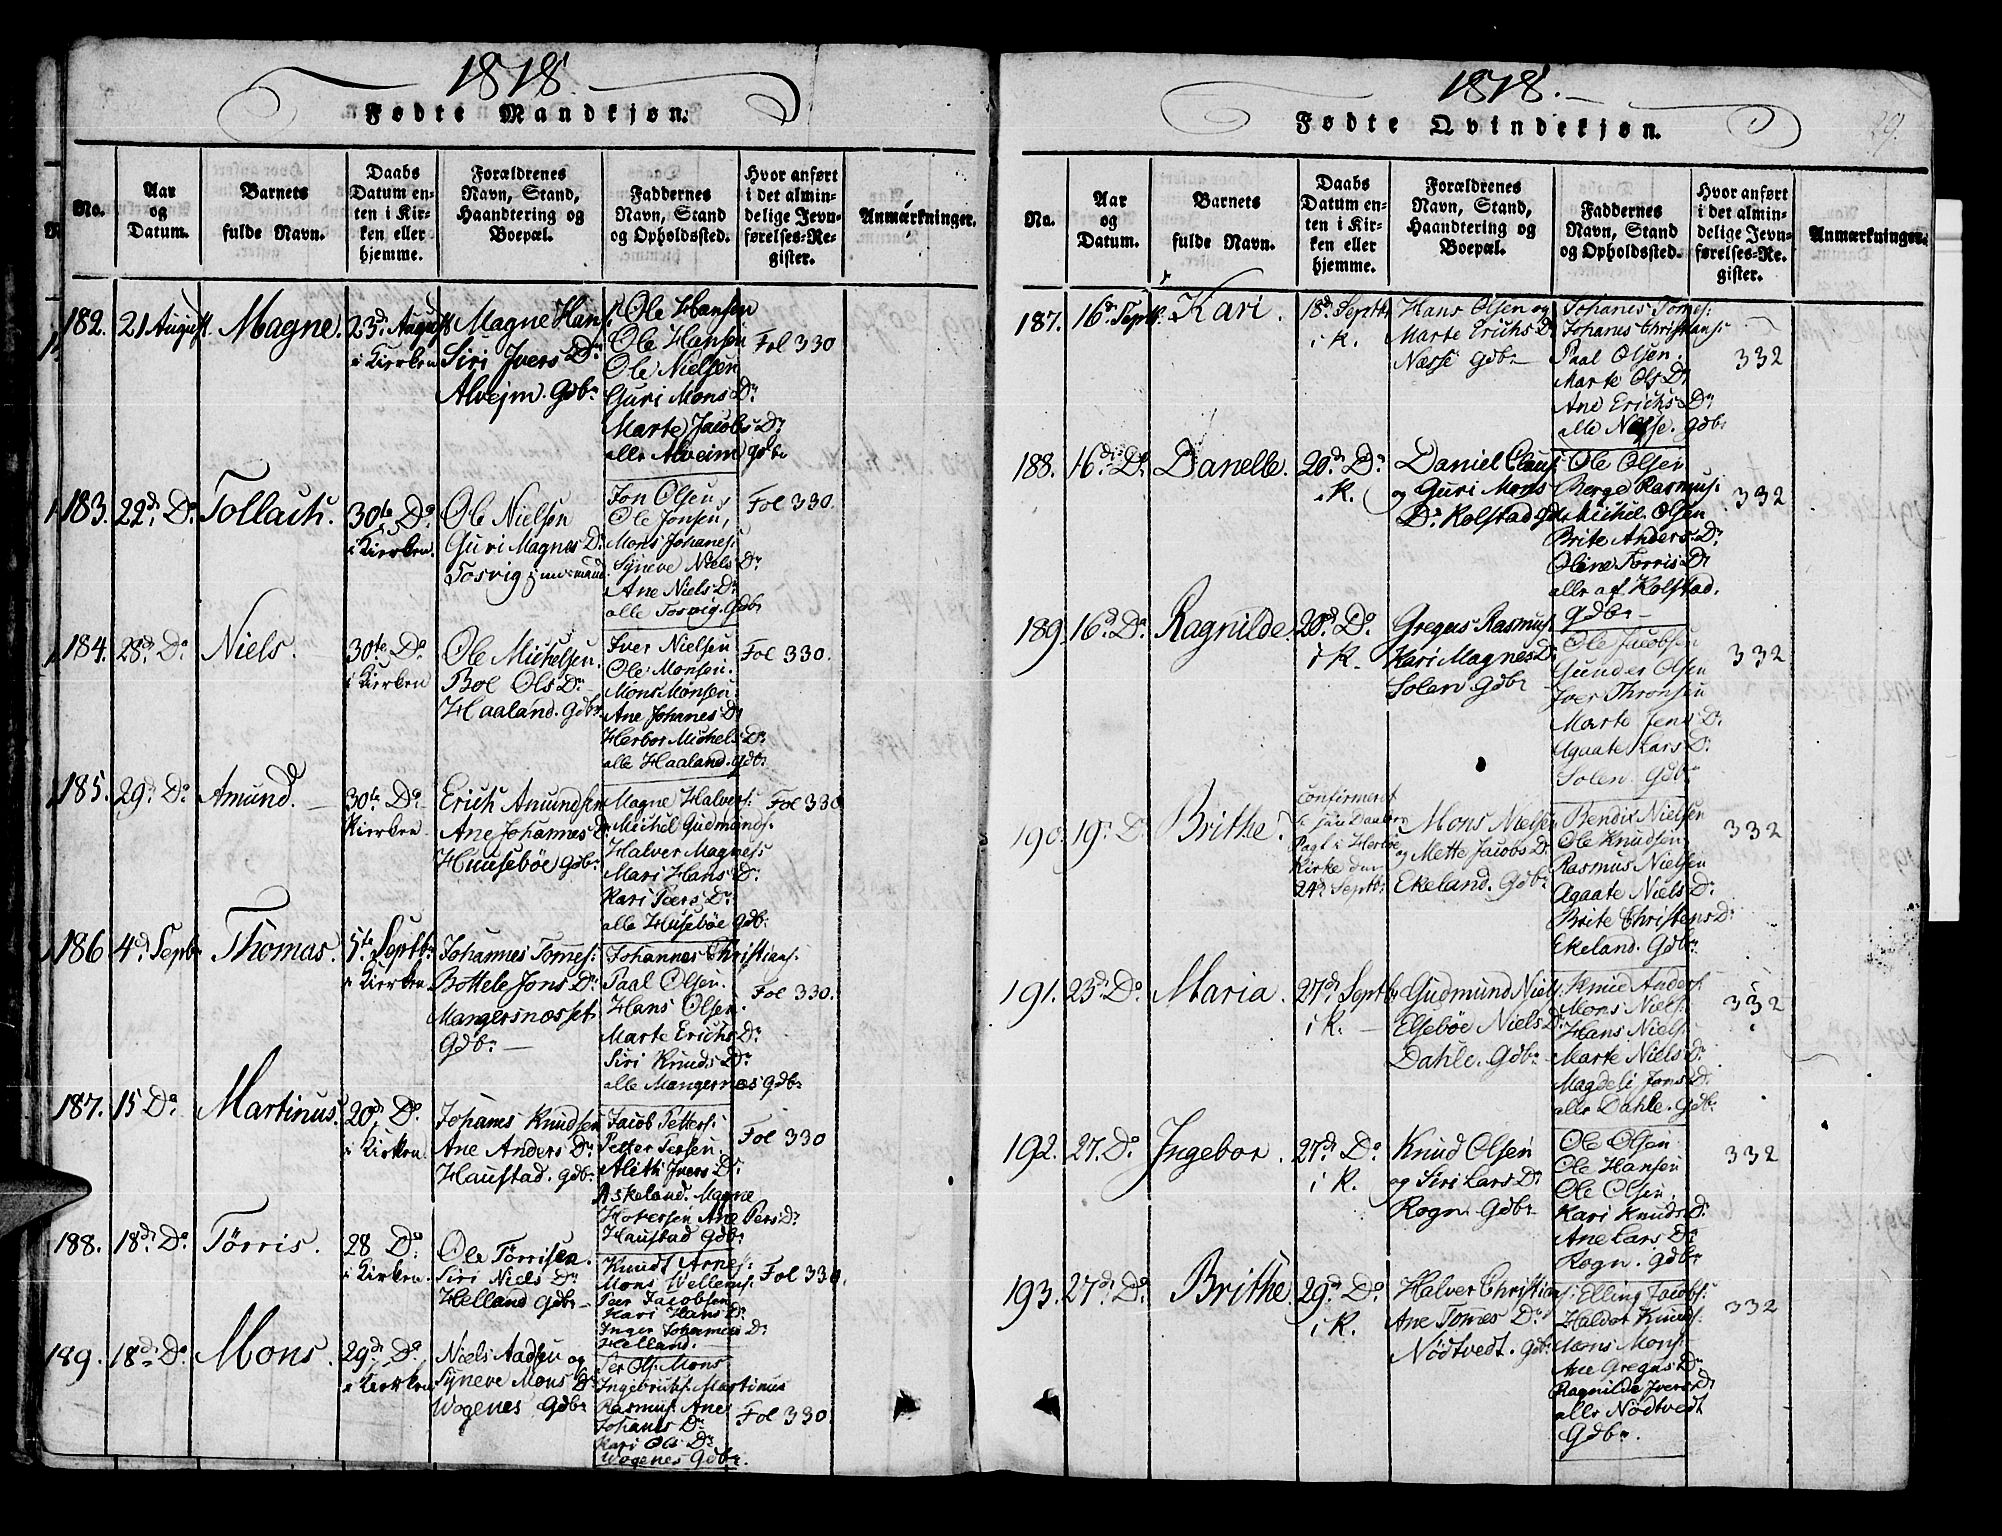 1818.
Fødte Mandkjøn.
No.
Aar
og
Datum.
Barnets
fulde Navn.
Daabs
Datum en-
ten i Kir-
ken eller
hjemme.
Forældrenes
Navn, Stand,
Haandtering og
Boepæl.
Faddernes
Navn, Stand
og Opholdssted.
Hvor anført
i det almin-
delige Jevn-
førelses-Re-
gister.
Anmærkninger.
182. 21 August. Magne. 23d August
i Kierken
Magne Hans:
Siri Ivers Dr
Alvejm. Gdbr
Ole Hansen
Ole Hansen
Ole Nielsen
Guri Mons Dr
Marte Jacobs Dr
alle Alveim gdbr
Fol 330
183. 22d Do Tollach. 30te Do
i Kierken.
Ole Nielsen
Guri Magnes D.
Tosvig
Jon Olsen,
Ole Jonsen,
Mons Johanes:
Syneve Niels Dr
Ane Niels Dr
alle Tosvig. Gdbr
Fol 330.
184. 28d Do Niels. 30te Do
i Kierken
Ole Michelsen.
Boe Ols Dr
Haaland. Gdbr
Iver Nielsen
Ole Monsen.
Mons Monsen
Ane Johanes Dr
Herbor Michels Dr
alle Haaland. gdbr
Fol 330.
185. 29d Do Amund. 30te Do
Kierken
Erich Amundsen
Ane Johannes D.
Huuseböe gdbr
Magne Halvers:
Michel Gudmunds:
Halver Magnes:
Mari Hans Dr
Kari Peers Dr
alle Husebøe gdbr
Fol 330
186 4d Sepbr Thomas. 5te Septbr
i Kierken
Johannes Tomes:
Bottele Jons Dr
Mangersnæsset
Gdbr
Johannes Christians:
Paal Olsen.
Hans Olsen.
Marte Erichs Dr
Siri Knuds Dr
alle Mangernæs gdbr
Fol 330.
187. 15 Do Martinus. 20d Do
i Kierken.
Johanes Knudsen
Ane Anders Dr
Haustad. gdbr
Jacob Petters:
Petter Persen
Aleth Ivers Dr
Askeland. Magne
Hotersen Ane Pers Dr
Haustad Gdbr
Fol 330
188. 18d Do Tørris. 28 Do
i Kierken.
Ole Tørrisen.
Siri Niels Dr
Helland gdbr
Knudt Arnes:
Mons Wellems:
Peer Jacobsen
Kari Hans Dr
Inger Johannes Dr
Helland.
Fol 330.
189. 18d Do Mons. 29d Do
i Kierken
Niels Aadsen og
Syneve Mons Dr
Wogenes Gdbr
Per Ols: Mons
Ingebrickts: Martinus
Rasmus: Ane
Johanes Dr
Kari Ols Dr
Wogenes Gdbr.
Fol 330.
1818.
Fødte Qvindekjøn.
29.
No.
Aar
og
Datum.
Barnets
fulde Navn.
Daabs
Datum en-
ten i Kir-
ken eller
hjemme.
Forældrenes
Navn, Stand,
Haandtering og
Boepæl.
Faddernes
Navn, Stand
og Opholdssted.
Hvor anført
i det almin-
delige Jevn-
førelses-Re-
gister.
Anmærkninger.
187. 16d Septbr. Kari. 18d Septbr
i K.
Hans Olsen og
Marte Erichs D.
Næsse gdbr
Johanes Tomes:
Johanes Christians:
Paal Olsen.
Marte Ols Dr
Ane Erichs Dr
alle Næsse. gdbr
332
188. 16d Do Danelle. 20d Do
i K.
Daniel Claus:
og Guri Mons
Dr Kolstad Gdbr
Ole Olsen
Berge Rasmus:
Michel Olsen
Brite Anders Dr
Oline Tørris Dr
alle af Kolstad.
gdbr
332
189. 16d Do Ragnilde. 20d Do
i K.
Gregus Rasmus:
Kari Magnes Dr
Solen Gdbr
Ole Jacobsen
Gunder Olsen
Iver Thronsen
Marte Jens Dr
Agaate Lars Dr
Solen. Gdbr
332
190. 19. Do Brithe. Confirmeret
Kirke den
24d Septbr.
Mons Nielsen
og Mette Jacobs Dr
Ekeland. Gdbr
Bendix Nielsen
Ole Knudsen
Rasmus Nielsen
Agaate Niels Dr
Brite Christens Dr
Ekeland. Gdbr
332
191. 23d Do Maria. 27d Septbr
i K.
Gudmund Niels:
Elsebøe Niels Dr
Dahle. Gdbr
Knud Anders:
Mons Niels:
Hans Niels:
Marte Niels Dr
Magdeli Jons Dr
alle Dahle. gdbr
332
192. 27. Do Ingebor. 27d Do
i K.
Knud Olsen
og Siri Lars Dr
Rogn. Gdbr
Ole Olsen
Ole Hansen
Ole Olsen.
Kari Knuds Dr
Ane Lars Dr
Rogn. Gdbr
332
193. 27d Do Brithe. 29d Do
i K.
Halver Christians:
Ane Tomes Dr
Nödtvedt. Gdbr
Elling Jacobs:
Haldor Knuds:
Mons Mons:
Ane Gregus Dr
Ragnilde Ivers Dr
alle Nödtvedt
Gdbr.
332